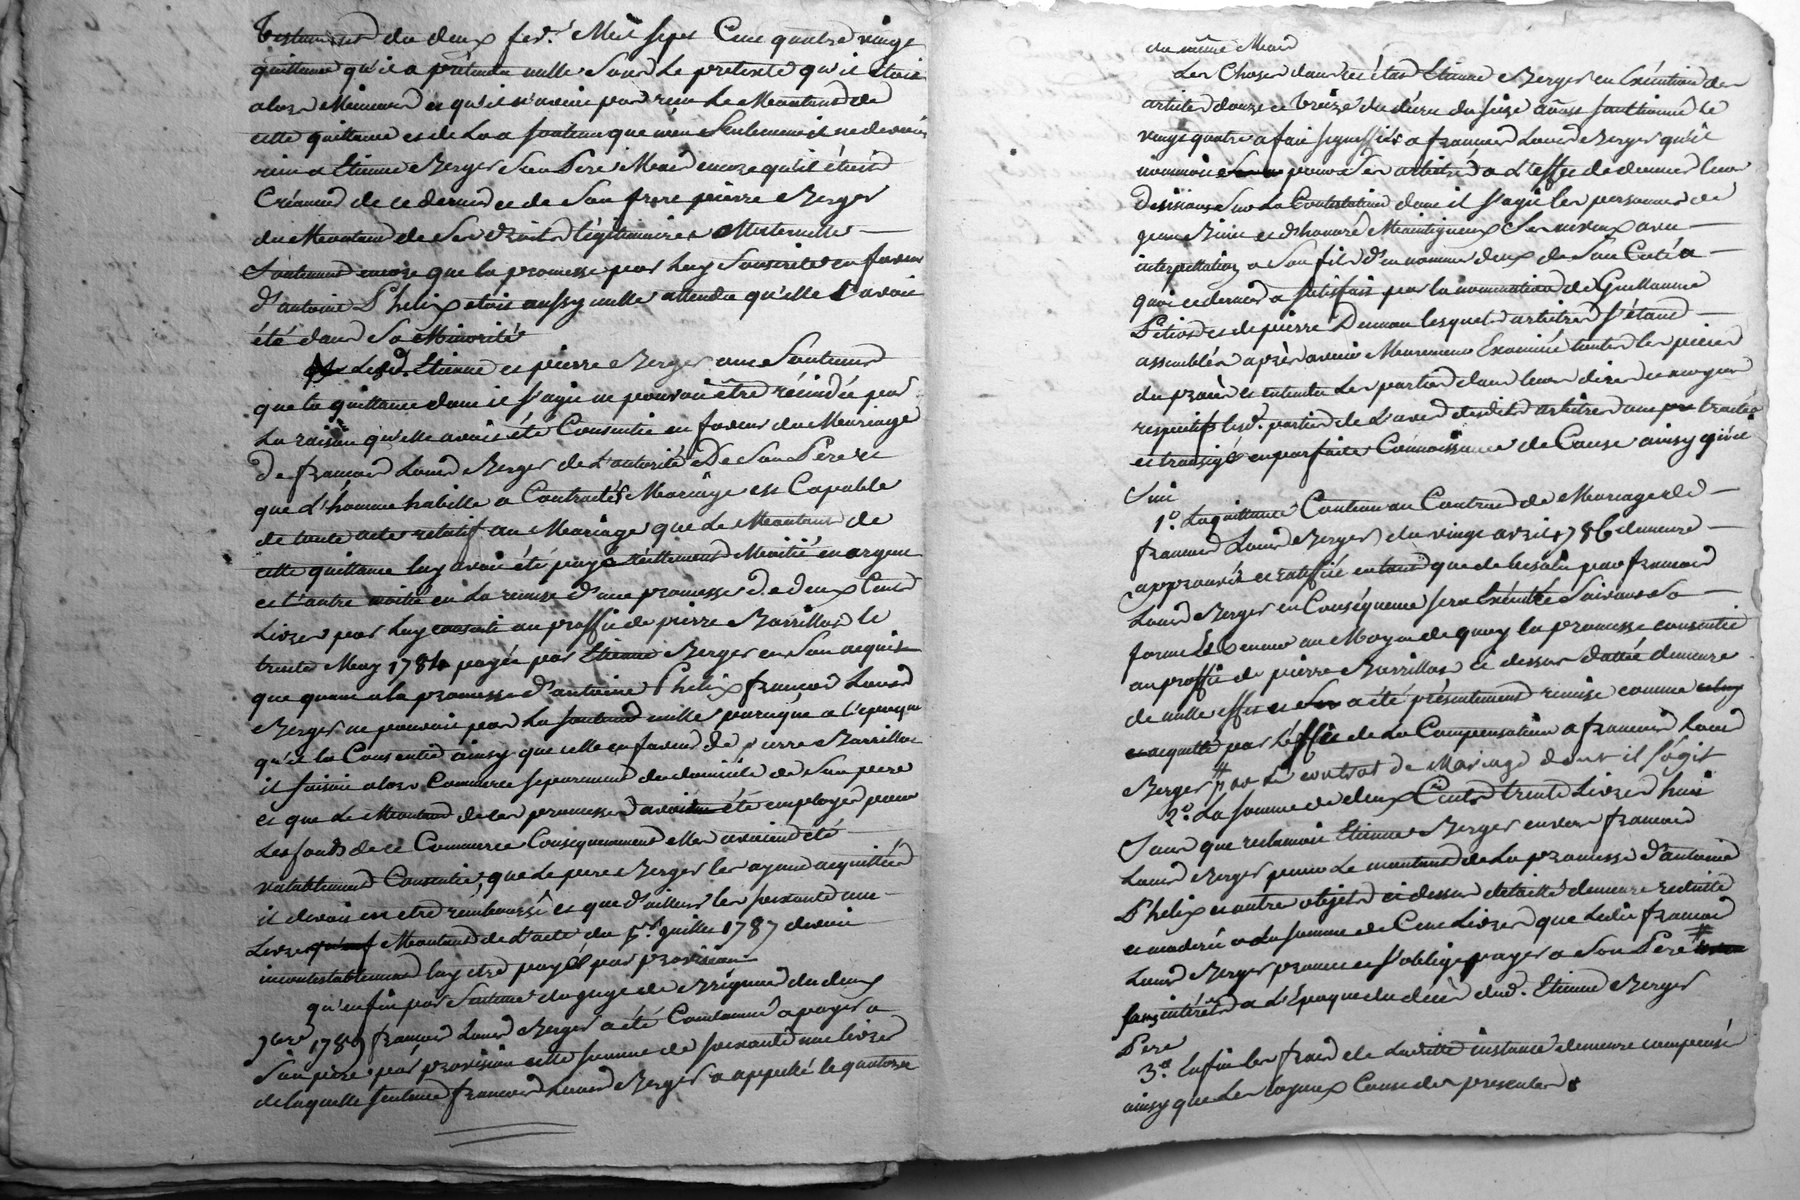 Testament du deux fev.r Mil sept Cent quatre vingt
quittance qu'il a pretendu nulle Sous Le pretexte qu'il étoit
alors Mineur et qu'il n'avoit pas reçu Le Montant de
cette quittance et de La a soutenu que non Seulement il ne devoit
rien a Etienne Berger Son Pere Mais encore qu'il étoit
Créancier de ce dernier et de Son frere pierre Berger
du Montant de Ses droits légitimaires Maternels
Soutenant encore que la promesse par Luy Souscrite en faveur
d'antoine Phelix etoit aussy nulle attendu qu'elle l'avoit
été dans Sa Minorité
Lesd. Etienne et pierre Berger ont Soutenu
que la quittance dont il s'agit ne pouvoit être récindée par
La raison qu'elle avoit été Consentie en faveur du Mariage
de francois Louis Berger de L'autorité De Son Pere et
que L'homme habille a Contracter Mariage est Capable
de toute acte relatif au Mariage que Le Montant de
cette quittance luy avoit été payé réellement Moitié en argent
et l'autre moitié en La remise d'une promesse de deux Cent
Livres par Luy consentie au proffit de pierre Barrillon le
trente May 1784 payée par Etienne Berger en Son acquit
que quant a la promesse d'antoine Phelix françois Louis
Berger ne pouvoit pas La soutenir nulle parceque a l'epoque
qu'il la Consentie ainsy que celle en faveur de pierre Barrillon
il faisoit alors Commerce separement du domicile de Son pere
et que Le Montant de ces promesses avoient été employer pour
Les fonds de ce Commerce Conséquemment elles avoient été
valablement Consentie, que Le pere Berger les ayant acquittées
il devoit en etre remboursé et que d'ailleurs les soixante une
Livres Montant de L'acte du 5.e Juillet 1787 devoit
incontestablement luy etre payé par provision
qu'enfin par Sentence du juge de du deux
9bre 1789 françois Louis Berger a été Condamné a payer a
Son pere par provision cette somme de soixante une livres
de laquelle sentence francois Louis Berger a appellé le quatorze
du même Mois
Les Choses dans cet état Etienne Berger en Exécution des
articles douze et treize du décret du seize août sanctionné le
vingt quatre a fait signiffier a francois Louis Berger qu'il
nommoit pour Ses arbitres a L'effet de donner leur
décisions Sur La Contestation dont il s'agit les personnes de
jean et d'honoré Ses neveux avec
interpellation a Son fils d'en nommer deux de Son Coté a
quoi ce dernier a satisfait par la nomination de Guillaume
et de pierre lesquels arbitres s'étant
assemblés après avoir Meurement Examiné toutes les pieces
du procès et entendu Les parties dans leurs dires et moyens
respectifs lesd. parties de L'avis desdits arbitres ont traitée
et transigé en parfaite Connoissance de Cause ainsy qu'il
Suit
1.o La quittance Contenu au Contrat de Mariage de
francois Louis Berger du vingt avril 1786 demeure
approuvée et ratiffié en tant que de besoin par francois
Louis Berger en Conséquence sera Exécutée Suivant Sa
forme Et teneur au Moyen de quoy la promesse consentie
au proffit de pierre Barrillon ci dessus dattée demeure
de nulle effet et a été présentement remise comme
acquitté par L'effet de La Compensation a francois Louis
Berger # par Le contrat de Mariage dont il s'agit
2.o La somme de deux Cents trente Livres huit
Sous que reclamoit Etienne Berger envers francois
Louis Berger pour Le montant de La promesse d'antoine
Phelix et autre objets ci dessus détaillé demeure reduitte
et moderé a La somme de Cent Livres que Ledit francois
Louis Berger promet et s'oblige payer a Son Pere #
sans intérêts a L'Epoque du décès dud. Etienne Berger
Pere
3.o Enfin les frais de Laditte instance demeure compensé
ainsy que Les loyaux Couts des presentes